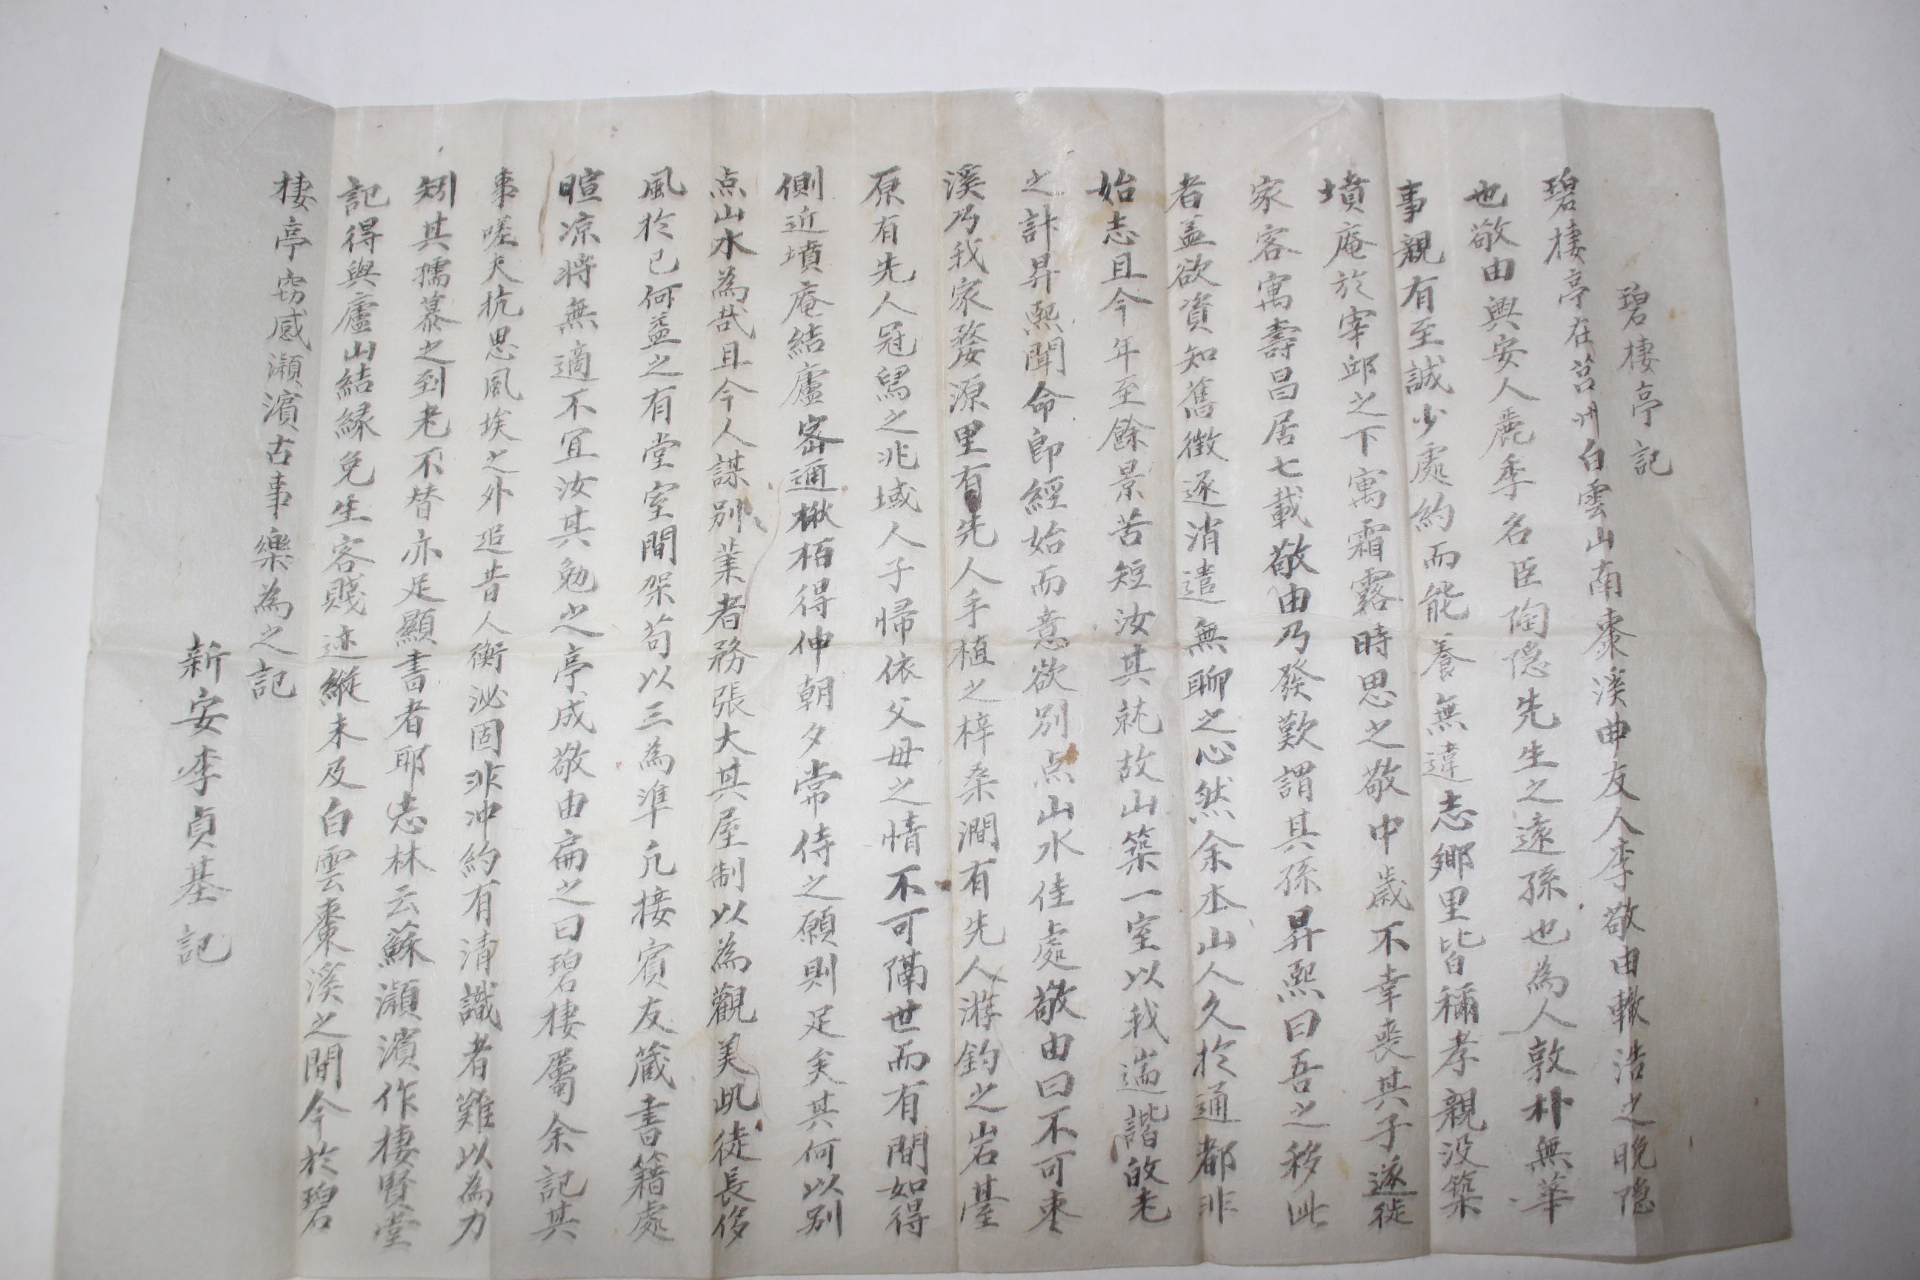 碧棲亭記
碧棲亭在莒州白雲山南棗溪曲友人李敬由轍浩之晚隱
也敬由興安人麗季名臣陶隱先生之遠孫也為人敦朴無華
事親有至誠少處約而能養無違志鄉里皆稱孝親沒築
墳庵於宰邱之下寓霜露時思之敬中歲不幸喪其子遂徙
家客寓壽昌居七載敬由乃發歎謂其孫昇熙曰吾之移此
者盖欲資知舊徵逐消遣無聊之心然余本山人久於通都非
始志且今年至餘景苦短汝其就故山築一室以我遄諧敀老
之計昇熙聞命即經始而意欲別点山水佳處敬由曰不可棗
溪乃我家婺源里有先人手植之梓桑澗有先人游釣之岩基
原有先人冠舄之兆域人子帰依父母之情不可隔世而有間如得
側近墳庵結廬密邇楸栢得伸朝夕常侍之願則足矣其何以別
点山水為哉且今人謀別業者務張大其屋制以為觀美此徒長侈
風於已何益之有堂室間架苟以三為準凡接賓友蔵書籍處
暄凉将無適不宜汝其勉之亭成敬由扁之曰碧棲屬余記其
事嗟夫抗思風埃之外追昔人衡泌固非冲約有清識者難以為力
矧其孺慕之到老不替亦足顯書者耶志林云蘇瀕濱作棲賢堂
記得與廬山結縁免生客賤迹縱未及白雲棗溪之間今於碧
棲亭窃感瀕濱古事樂為之記
新安李貞基記